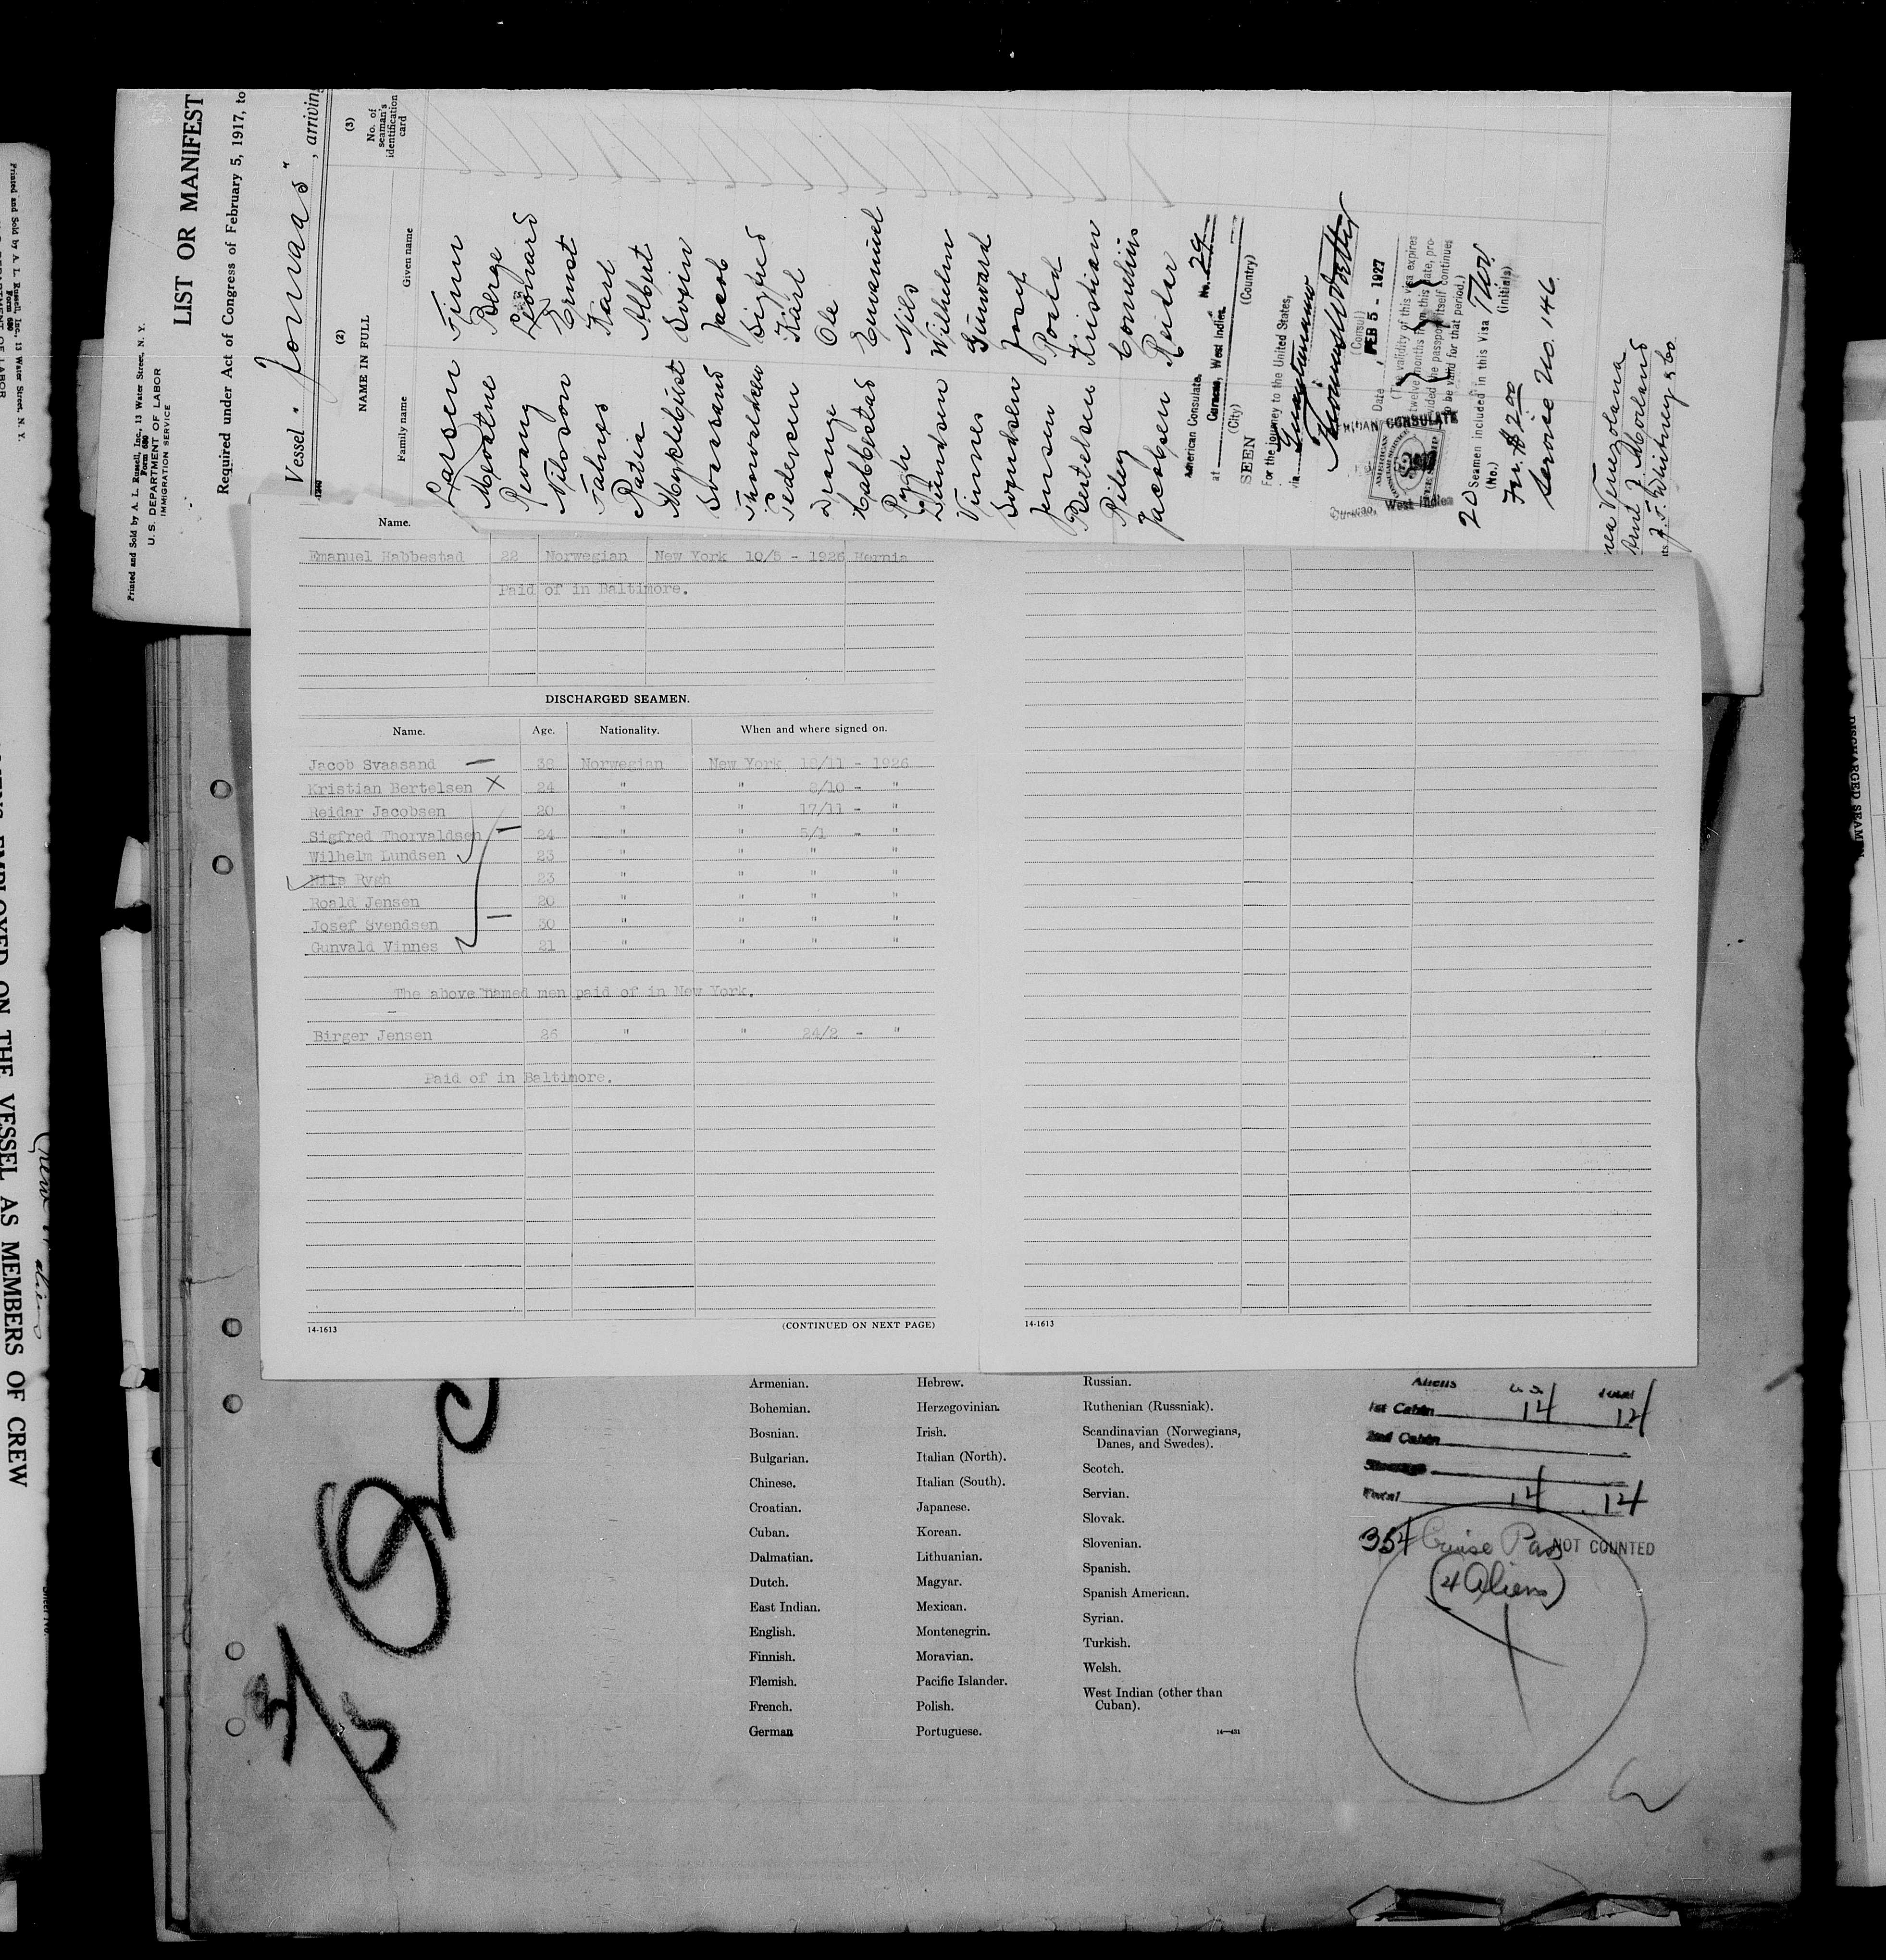 Printed and Sold by A. L. Russell, Inc., 13 Water Street, N. Y.
Form 680
U. S. DEPARTMENT OF LABOR
IMMIGRATION SERVICE
LIST OR MANIFEST
Required under Act of Congress of February 5, 1917, to
Vessel "Jonnas", arriving
(2)
NAME IN FULL
(3)
No. of seaman's identification card
Family name Given name
Larsen Finn
Berge
Leonard
Nilsson Ernst
Karl
Albert
Myklebust Svein
Svaasand Jacob
Thorvaldsen Sigfred
Pedersen Karl
Ole
Habbestad Emanuel
Rygh Nils
Lundsen Wilhelm
Vinnes Gunvard
Svendsen Josef
Jensen Roald
Bertelsen Kristian
Riley Cornelius
Jacobsen Reidar
American Consulate. No. 29
at Curacao, West Indies
(City) (Country)
SEEN
For the journey to the United States,
via
(Consul)
Date FEB 5 - 1927
(The validity of this visa expires
twelve months from this date, pro-
vided the passport itself continues
to be valid for that period.)
20 Seamen included in this visa
(No.) (initials)
CONSULATE
Curacao, West Indies
Service No. 146.
Name.
Emanuel Habbestad 22 Norwegian New York 10/5 - 1926 Hernia
Paid of in Baltimore.
DISCHARGED SEAMEN.
Name. Age. Nationality. When and where signed on.
Jacob Svaasand 38 Norwegian New York 18/11 - 1926
Kristian Bertelsen X 24 " " 8/10 - "
Reidar Jacobsen 20 " " 17/11 - "
Sigfred Thorvaldsen 24 " " 5/1 - "
Wilhelm Lundsen 23 " " " "
Nils Rygh 23 " " " "
Roald Jensen 20 " " " "
Josef Svendsen 30 " " " "
Gunvald Vinnes 21 " " " "
The above named men paid of in New York.
Birger Jensen 26 " " 24/2 - "
Paid of in Baltimore.
14-1613 (CONTINUED ON NEXT PAGE)
14-1613
Armenian. Hebrew. Russian.
Bohemian. Herzegovinian. Ruthenian (Russniak).
Bosnian. Irish. Scandinavian (Norwegians, Danes, and Swedes).
Bulgarian. Italian (North). Scotch.
Chinese. Italian (South). Servian.
Croatian. Japanese. Slovak.
Cuban. Korean. Slovenian.
Dalmatian. Lithuanian. Spanish.
Dutch. Magyar. Spanish American.
East Indian. Mexican. Syrian.
English. Montenegrin. Turkish.
Finnish. Moravian. Welsh.
Flemish. Pacific Islander. West Indian (other than Cuban).
French. Polish.
German Portuguese.
14-431
Aliens U.S. Total
1st Cabin 14 14
2nd Cabin
Steerage
Total 14 14
354 Cruise Pass NOT COUNTED
(4 Aliens)
EMPLOYED ON THE VESSEL AS MEMBERS OF CREW
DISCHARGED SEAMEN